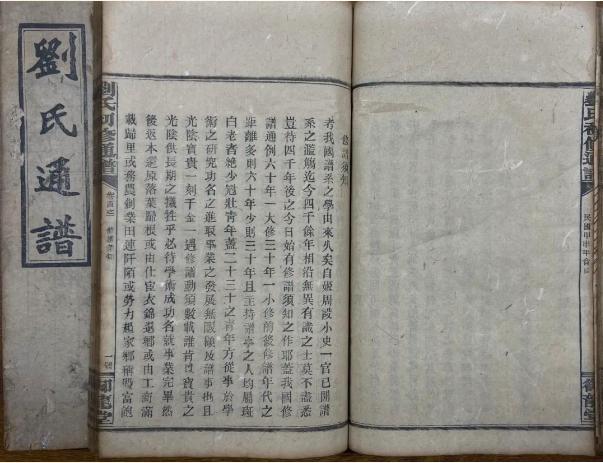 劉氏通譜
修譜須知
考我國譜系之學由來久矣自姬周設小史一官已開譜
系之濫觴迄今四千餘年相沿無異有識之士莫不盡悉
豈待四千年後之今日始有修譜須知之作耶蓋我國修
譜通例六十年一大修三十年一小修前後修譜年代之
距離多則六十年少則三十年且主持譜事之人均屬斑
白老者絕少冠壯青年蓋二十三十之青年方從事於學
術之研究功名之進取事業之發展無暇顧及譜事也且
光陰寶貴一刻千金一遇修譜動須數載誰肯以寶貴之
光陰供長期之犧牲乎必待學術成功名就事業完畢然
後返本還原落葉歸根或由仕宦衣錦還鄉或由工商滿
載歸里或務農創業田連阡陌或勞力起家鄉稱殷富飽
劉氏初修通譜
卷首之
修譜須知
一
御龍堂
劉氏初修通譜
民國甲申年
御龍堂